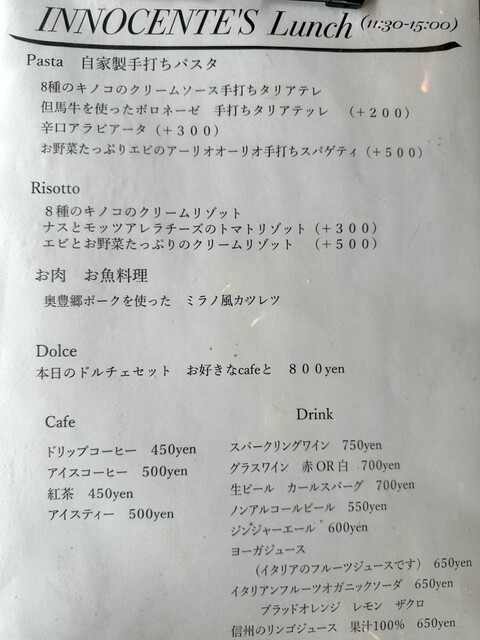 INNOCENTE'S Lunch (11:30-15:00)
Pasta 自家製手打ちパスタ
8種のキノコのクリームソース手打ちタリアテレ
但馬牛を使ったボロネーゼ 手打ちタリアテッレ （＋２００）
辛口アラビアータ（＋３００）
お野菜たっぷりエビのアーリオオーリオ手打ちスパゲティ（＋５００）
Risotto
８種のキノコのクリームリゾット
ナスとモッツアレラチーズのトマトリゾット（＋３００）
エビとお野菜たっぷりのクリームリゾット （＋５００）
お肉 お魚料理
奥豊郷ポークを使った ミラノ風カツレツ
Dolce
本日のドルチェセット お好きなcafeと ８００yen
Cafe
ドリップコーヒー 450yen
アイスコーヒー 500yen
紅茶 450yen
アイスティー 500yen
Drink
スパークリングワイン 750yen
グラスワイン 赤OR白 700yen
生ビール カールスバーグ 700yen
ノンアルコールビール 550yen
ジンジャーエール 600yen
ヨーガジュース
（イタリアのフルーツジュースです） 650yen
イタリアンフルーツオガニックソーダ 650yen
ブラッドオレンジ レモン ザクロ
信州のリンゴジュース 果汁100% 650yen